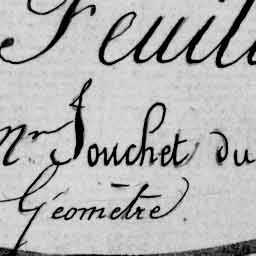 Feuill
Mr Jouchet du
Géomètre